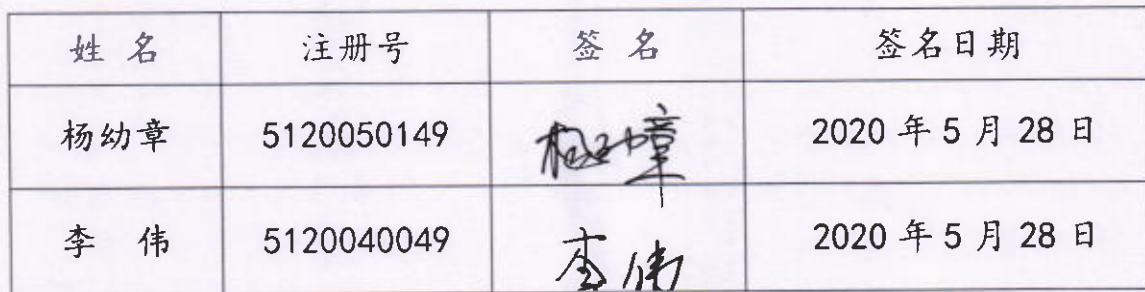 姓 名 注册号 签 名 签名日期
杨幼章 5120050149 杨幼章 2020 年 5 月 28 日
李 伟 5120040049 李伟 2020 年 5 月 28 日